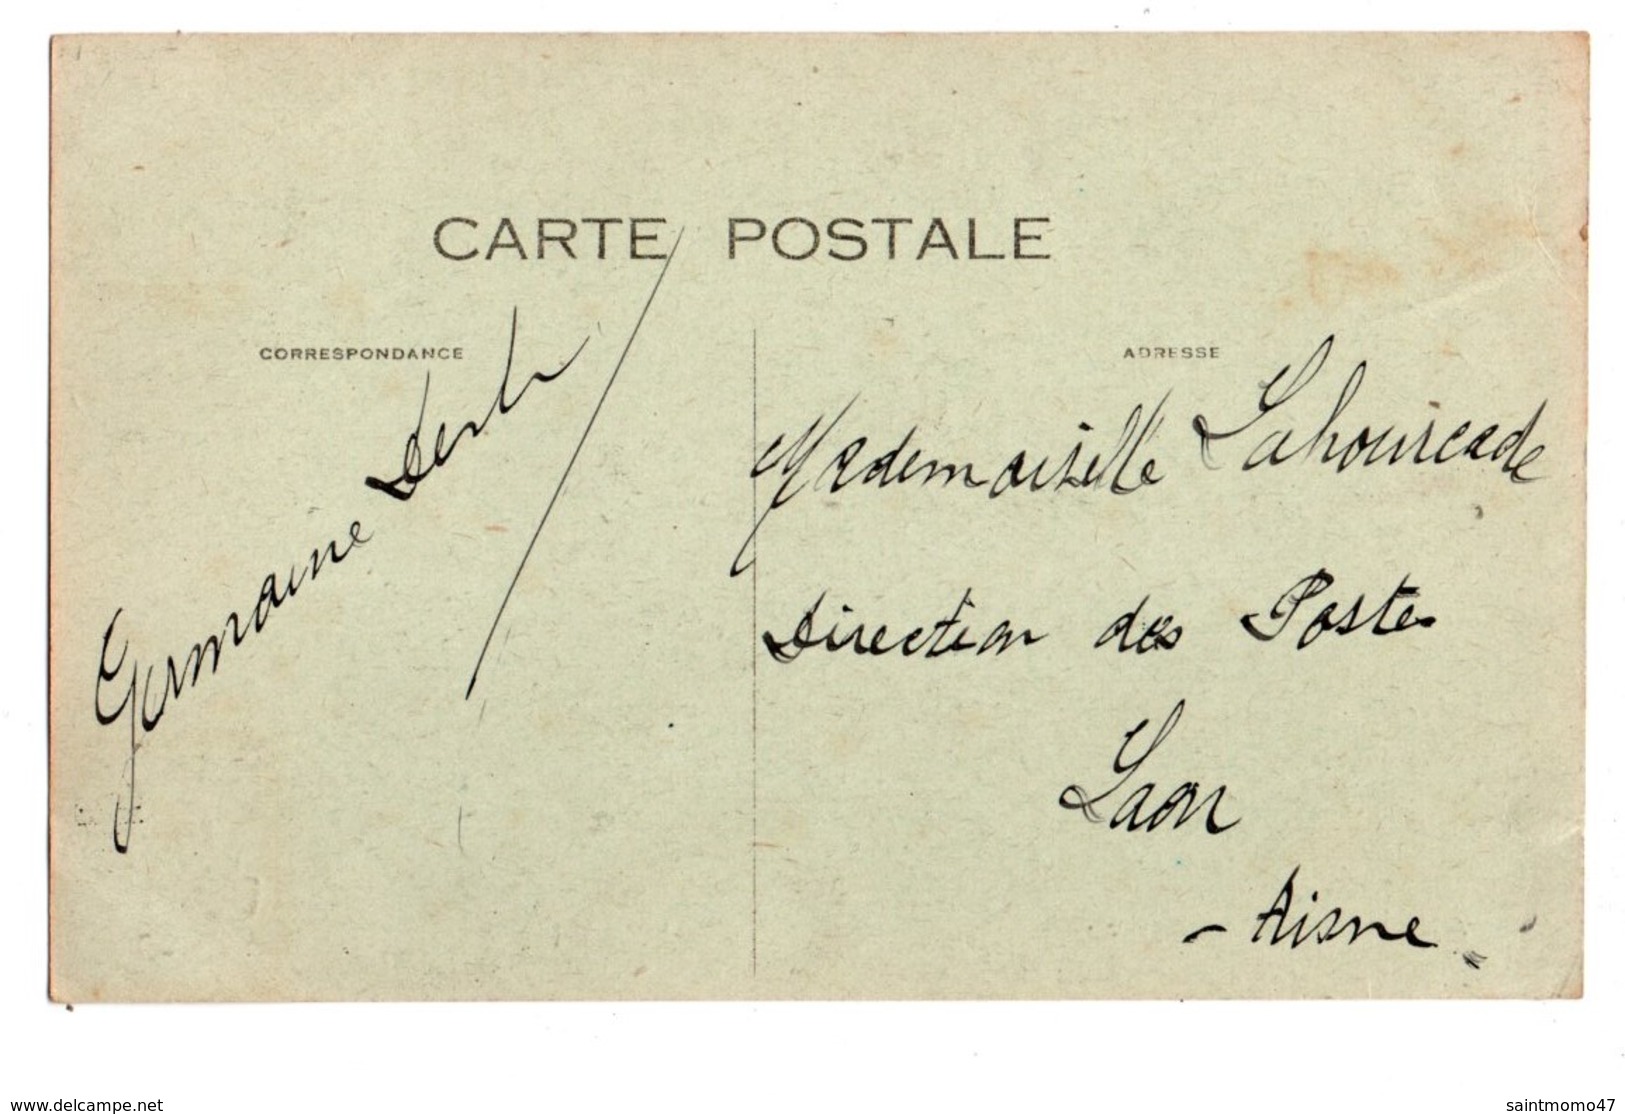 CARTE POSTALE
CORRESPONDANCE
ADRESSE
Germaine
Mademoiselle Lahourcade
Direction des Postes
Laon
- Aisne
www.delcampe.net
saintmomo47